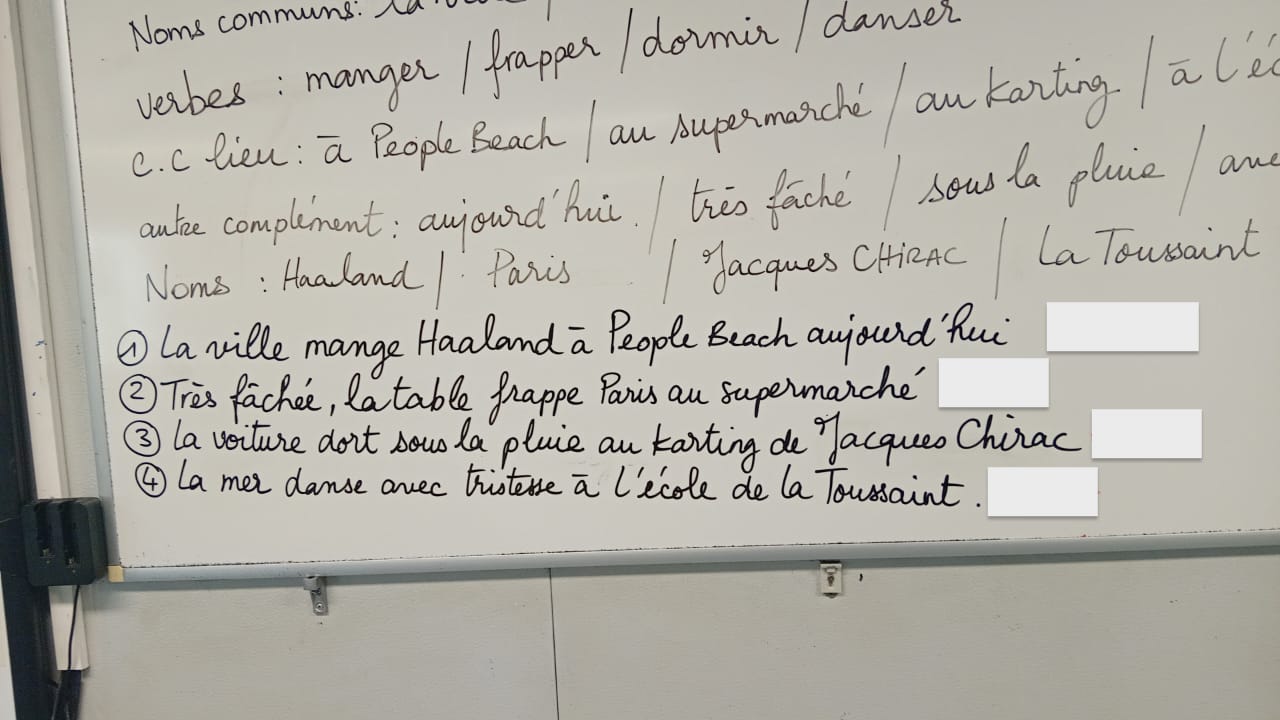 Noms communs: la
verbes : manger / frapper / dormir / danser
c.c lieu : à People Beach / au supermarché / au karting / à l'éc
autre complément : aujourd'hui. / très fâché / sous la pluie / ave
Noms : Haaland / Paris / Jacques CHIRAC / La Toussaint
① La ville mange Haaland à People Beach aujourd'hui
② Très fâchée, la table frappe Paris au supermarché
③ La voiture dort sous la pluie au karting de Jacques Chirac
④ La mer danse avec tristesse à l'école de la Toussaint.